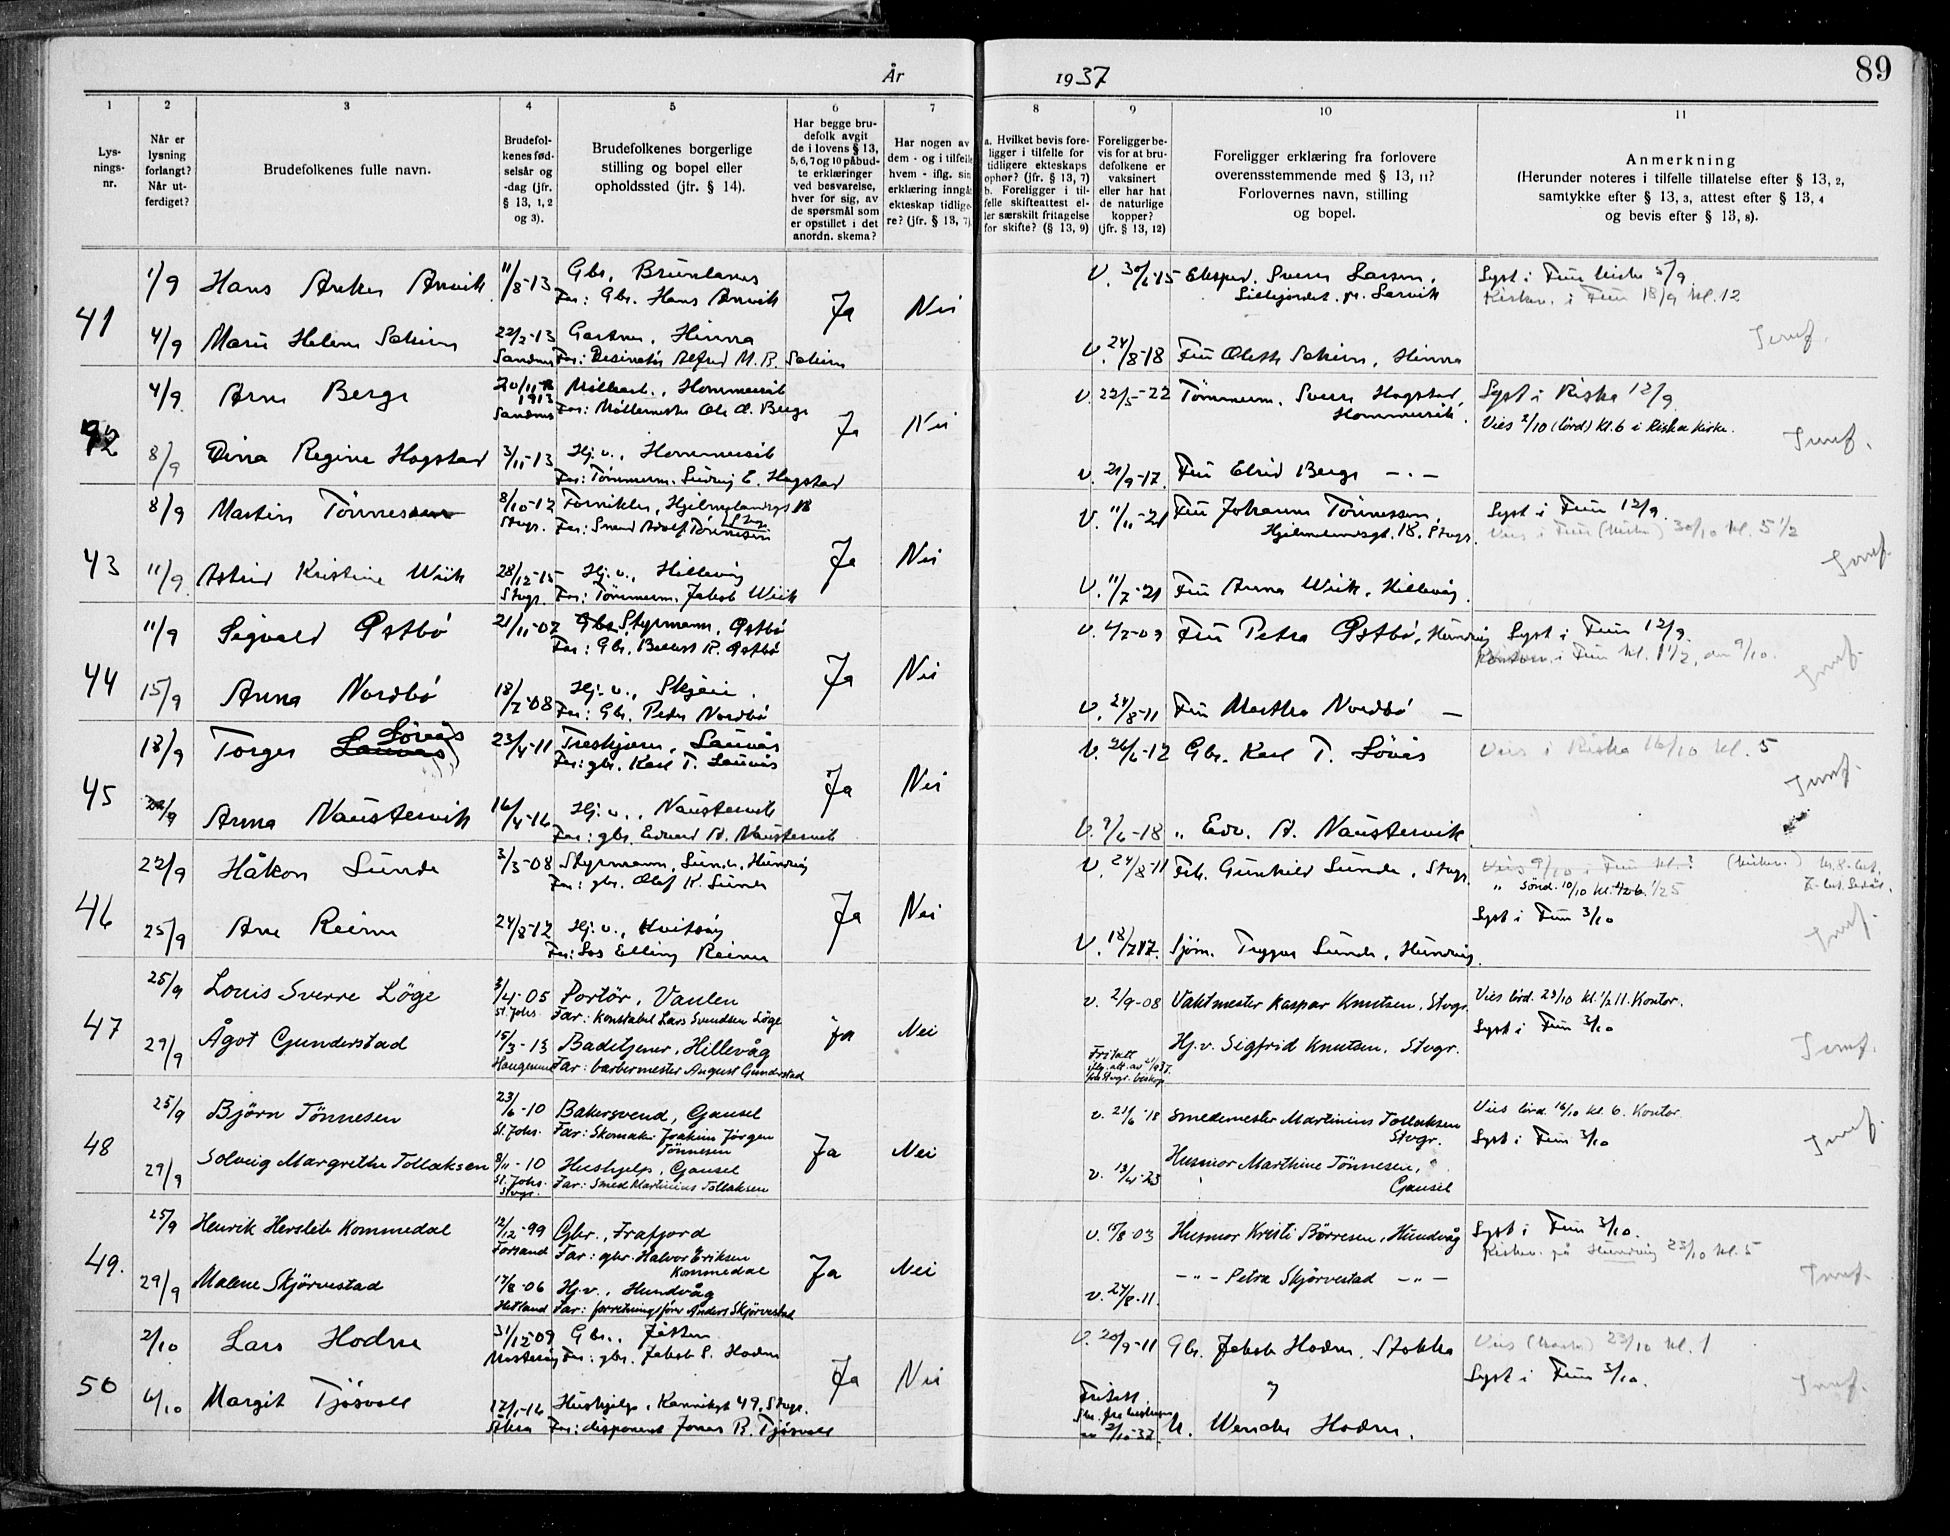 År 1937
89
1 2 3 4 5 6 7 8 9 10 11
Lys-
nings-
nr.
Når er
lysning
forlangt?
Når ut-
ferdiget?
Brudefolkenes fulle navn.
Brudefol-
kenes fød-
selsår og
-dag (jfr.
§ 13, 1, 2
og 3).
Brudefolkenes borgerlige
stilling og bopel eller
opholdssted (jfr. § 14).
Har begge bru-
defolk avgit
de i lovens § 13,
5, 6, 7 og 10 påbud-
te erklæringer
ved besvarelse,
hver for sig, av
de spørsmål som
er opstillet i det
anordn. skema?
Har nogen av
dem - og i tilfelle
hvem - iflg. sin
erklæring inngå
ekteskap tidlige-
re? (jfr. § 13, 7)
a. Hvilket bevis fore-
ligger i tilfelle for
tidligere ekteskaps
ophør? (jfr. § 13, 7)
b. Foreligger i til-
felle skifteattest el-
ler særskilt fritagelse
for skifte? (§ 13, 9)
Foreligger be-
vis for at bru-
defolkene er
vaksinert
eller har hat
de naturlige
kopper?
(jfr. § 13, 12)
Foreligger erklæring fra forlovere
overensstemmende med § 13, 11?
Forlovernes navn, stilling
og bopel.
Anmerkning
(Herunder noteres i tilfelle tillatelse efter § 13, 2,
samtykke efter § 13, 3, attest efter § 13, 4
og bevis efter § 13, 8).
41
1/9 Hans Anker Anvik 11/8-13 Gbr., Brunlanes
Far: Gbr. Hans Anvik
Ja Nei
V. 30/6-15 Eksped. Sverre Larsen,
Lyst i Frue kirke 5/9
Kirkev. i Frue 18/9 kl. 12
4/9 Marie Helene Scheie 22/2-13 Gartner, Hinna
Sandnes
V. 24/8-18 Fru Scheie, Hinna
42
4/9 Arne Berge 20/11-
1913
Sandnes
Møllearb., Hommersåk
Far: Møllemester Ole O. Berge
Ja Nei
V. 22/5-22 Tømmerm. Sverre Hogstad,
Hommersåk.
Lyst i Riska 12/9
Vies 2/10 (lørd) kl. 6 i Riska kirke.
8/9 Dina Regine Hogstad 3/11-13 Hj.v., Hommersåk
Far: Tømmerm. Ludvig E. Hogstad
V. 21/9-17. Fru Elrid Berge -"-
43
8/9 Martin Tønnessen 8/10-12 Fornikler, Hjelmelandsgt 18
Stvgr. Far: Svend Adolf Tønnesen
Ja Nei
V. 11/11-21 Fru Johanne Tønnessen,
Hjelmelandsgt. 18, Stvgr.
Lyst i Frue 12/9.
Vies i Frue (kirken) 30/10 kl. 5 1/2
11/9 Astrid Kristine Wiik 28/12-15 Hj.v., Hillevåg
Stvgr. Far: Tømmerm. Jakob Wiik
V. 11/7-21 Fru Anna Wiik, Hillevåg.
44
11/9 Sigvald Østbø 21/11-02 Gbr. Styrmann, Østbø
Far: Gbr. Berent R. Østbø
Ja Nei
Fru Petra Østbø, Hundvåg
Lyst i Frue 12/9.
i Frue kl. 1 1/2, den 9/10.
15/9 Anna Nordbø 18/7-08 Hj.v., Skjeie.
Far: Gbr. Peder Nordbø
V. 24/8-11 Fru Martha Nordbø —
45
18/9 Torger Lauvås Løvås 23/4-11 Treskjærer, Lauvås
Far: gbr. Karl T. Lauvås
Ja Nei
V. 26/6-12 Gbr. Karl T. Løvås
Vies i Riska 16/10 kl. 5
Anna Naustervik 16/4-16 Hj.v., Naustervik
Far: gbr. Edvard A. Naustervik
V. 7/6-18 " Edv. A. Naustervik
46
22/9 Håkon Sunde 3/3-08 Styrmann, Sunde, Hundvåg
Far: gbr. Olaf K. Sunde
Ja Nei
V. 24/8-11 Frk. Gunhild Sunde, Stvgr.
Vies 9/10 i Frue kl. ? (kirken.)
" sønd. 10/10 kl.
Lyst i Frue 3/10
25/9 Ane Reime 24/8-12 Hj.v., Kvitsøy
Far: Los Elling Reime
V. 18/7 17. Sjøm. Trygve Sunde, Hundvåg.
47
25/9 Louis Sverre Løge 3/4-05 Portør, Vaulen
St. Johs. Far: Konstabel Lars Svendsen Løge
Ja Nei
v. 2/9-08 Vaktmester Kaspar Knutsen, Stvgr.
Vies lørd. 23/10 kl. 1/2 11. Kontor.
Lyst i Frue 3/10
29/9 Ågot Gunderstad 15/3-13 Badetjener, Hillevåg
Haugesund Far: barbermester August Gunderstad
Fritatt
iflg. att. av
fra Stvgr. biskop
Hj.v. Sigfrid Knutsen, Stvgr.
48
25/9 Bjørn Tønnesen 23/6-10 Bakersvend, Gausel
St. Johs. Far: Skomaker Joakim Jørgen
Tønnesen
Ja Nei
v. 21/6-18 Smedmester Martinius Tollaksen
Stvgr.
Vies lörd. 16/10 kl. 6. Kontor.
Lyst i Frue 3/10
29/9 Solveig Margrethe Tollaksen 8/11-10 Hushjelp, Gausel
St. Johs. Stvgr. Far: Smed Martinius Tollaksen
v. 13/4-23 Husmor Marthine Tønnesen,
Gausel
49.
25/9 Henrik Herslеb Kommedal 12/12-99 Gbr., Frafjord
Forsand Far: gbr. Halvor Eriksen
Kommedal
Ja Nei
Husmor Kristi Børresen, Hundvåg
Lyst i Frue 3/10.
Kirkev. på Hundvåg 23/10 kl. 5
29/9 Malene Skjørvestad 17/8-06 Hj.v., Hundvåg
Hetland Far: forretningsfører Anders Skjørvestad
v. 24/8-11.
-"- Petra Skjørvestad -"-
50
2/10 Lars Hodne 31/12-09 Gbr., Jåtten
Mosterøy Far: gbr. Jakob S. Hodne
Ja Nei
V. 20/9-11 Gbr. Jakob Hodne, Stokka
Vies 23/10 kl. 1
Lyst i Frue 3/10.
6/10 Margit Tjøsvoll Hushjelp, Kannikgt 49, Stvgr.
Åkra Far: disponent Jonas R. Tjøsvoll
Fritatt
Wenche Hodne.